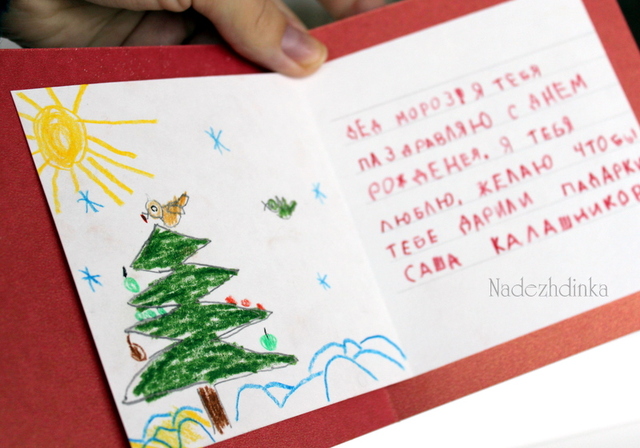 ДЕД МОРОЗ! Я ТЕБЯ
ПАЗДРАВЛЯЮ С ДНЕМ
РОЖДЕНЕЯ. Я ТЕБЯ
ЛЮБЛЮ. ЖЕЛАЮ ЧТОБЫ
ТЕБЕ ДАРИЛИ ПАДАРК
САША КАЛАШНИКО
Nadezhdinka